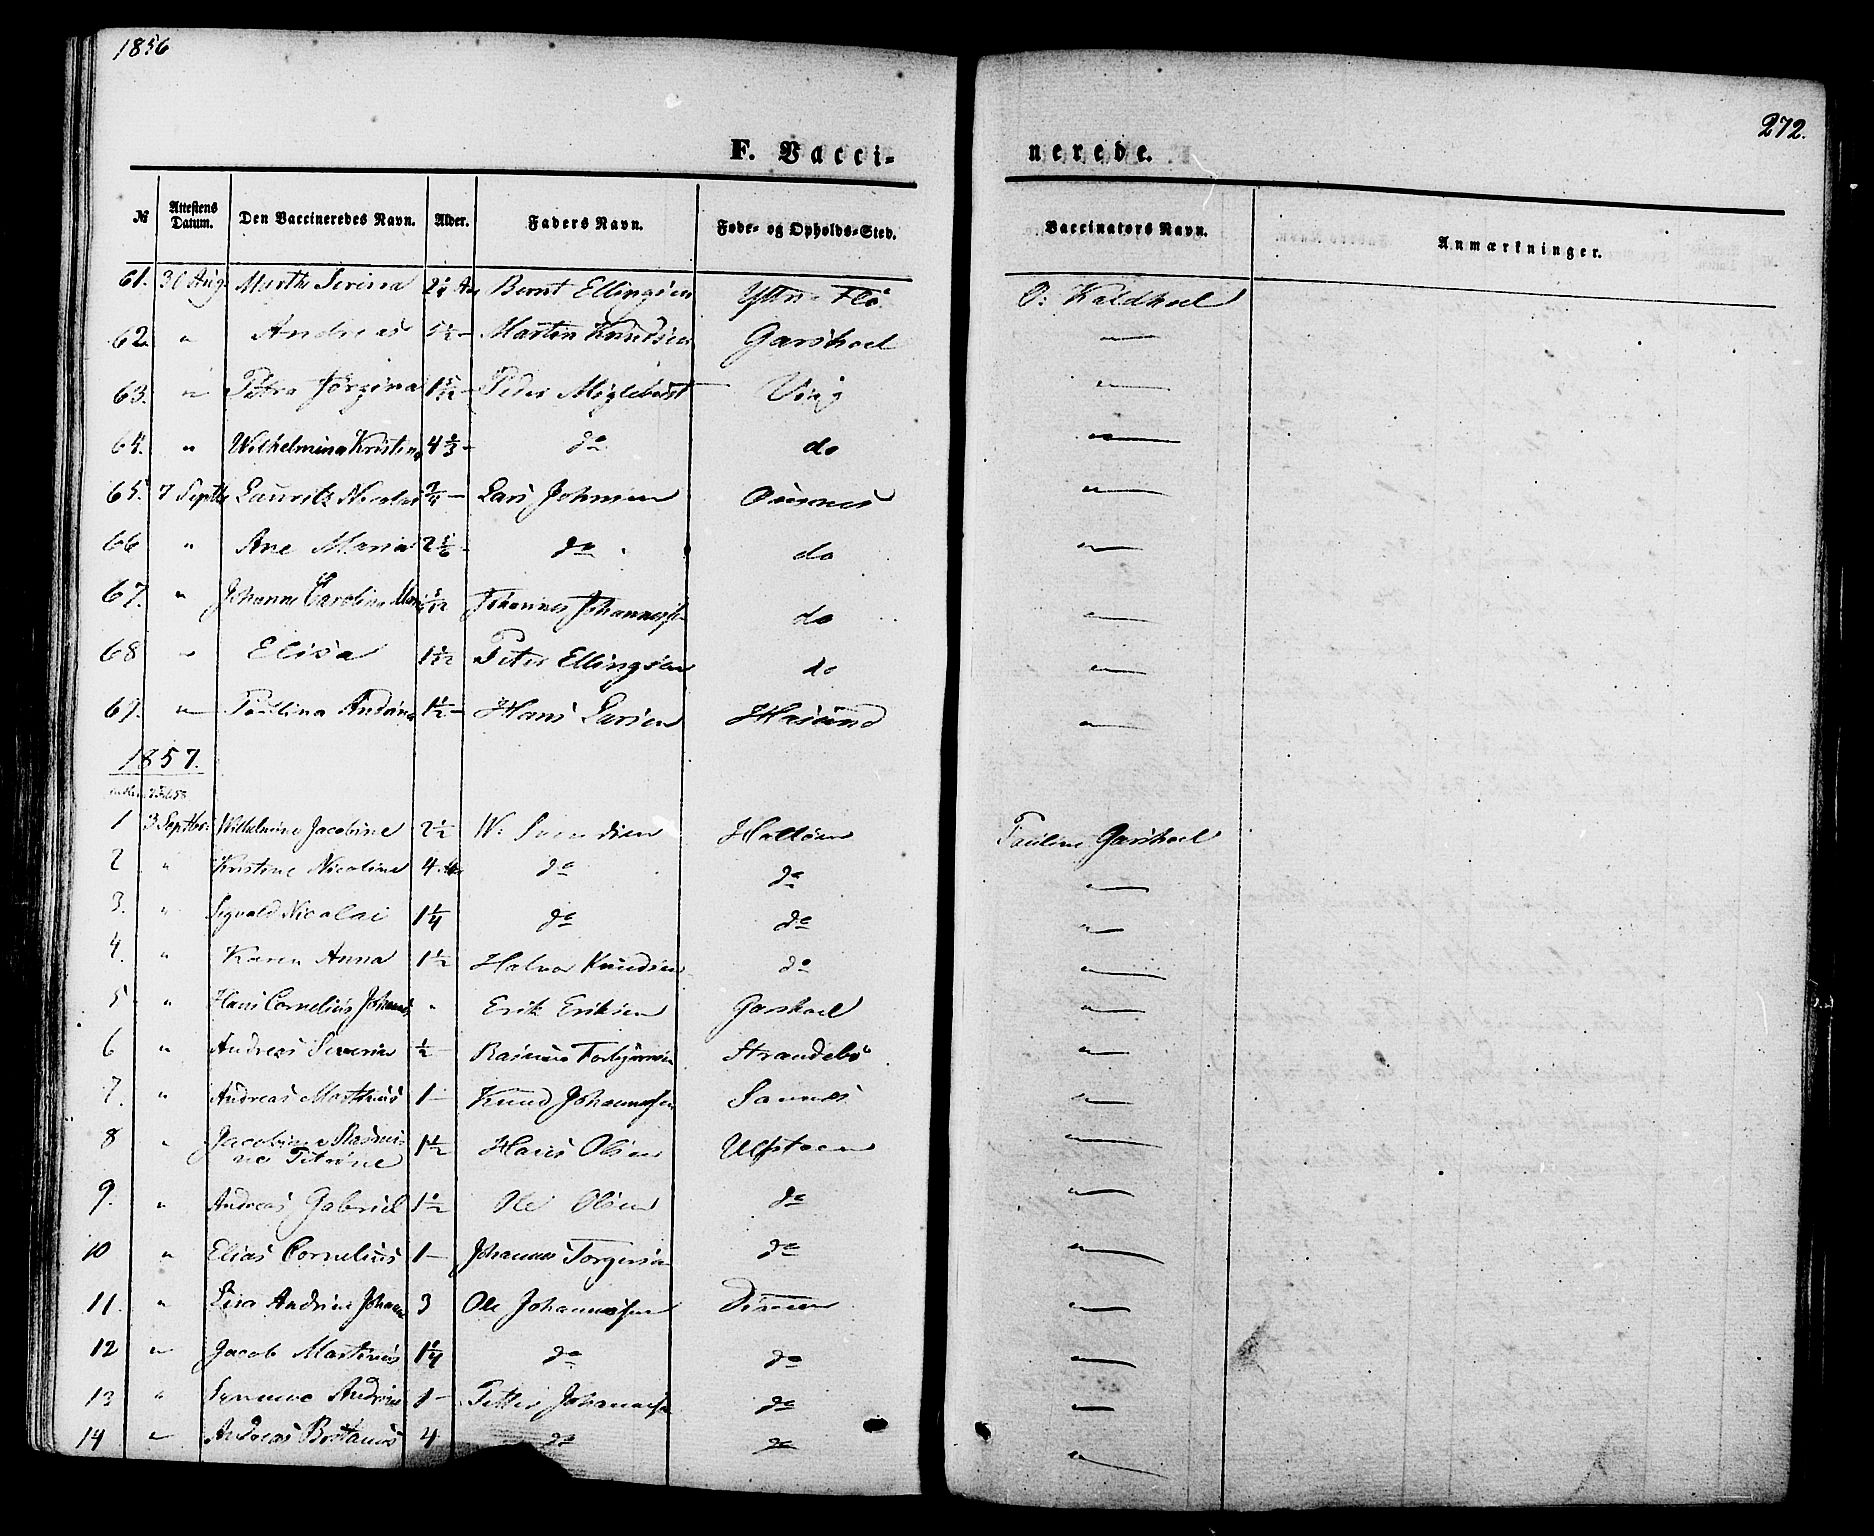 1856
272.
F. Vacci-
nerede.
№ Attestens Datum. Den Vaccineredes Navn. Alder. Faders Navn. Føde- og Opholds-Sted. Vaccinators Navn. Anmærkninger.
61. 30 Aug Marthe Serina 2¼ Bernt Ellingsen Yttre Flö O: Kaldhoel
62. " Andreas Martin Knudsen Garshoel "
63. " Petra Jørgina Peder "
64. " Wilhelmina Kristina 4⅔ - do do "
65. 7 Septb Lauritz Nicolai ¾ - Lars Johnsen "
66 " Ane Maria 2⅙ - do do "
67. " Johanne Carolina Johannes Johannessen do "
68 " Elisa Peter Ellingsen do "
69. " Paulina 1½ - Hans Larsen Hasund "
1857.
1 3 Septbr. Wilhelmine Jacobine 2½ W. Svendsen Hatløen Pauline Garshoel
2 " Kristine Nicoline 4 do do "
3. " Sigvald Nicolai 1¼ do do "
4. " Karen Anna 1½ Halvor Knudsen do "
5 " Hans Cornelius Johannes " Erik Eriksen Garshoel "
6 " Andreas Severin ½ - Rasmus Torbjørnsen Strandebø "
7. " Andreas Martinus 1 - Knud Johannessen Saunes "
8 " Jacobine Rasmi-
ne Petrine 1½ Hans Olsen Ulfstoen "
9. " Andreas Gabriel 1½ Ole Olsen do "
10 " Elias Cornelius 1 - Johannes Torgersen do "
11. " Lisa Andrine Johanne 3 Ole Johannessen Dimen "
12 " Jacob Martinus 1¼ do do "
13 " Synneve Andrine 1 - Petter Johannessen do "
14 " Andreas 4 do do "